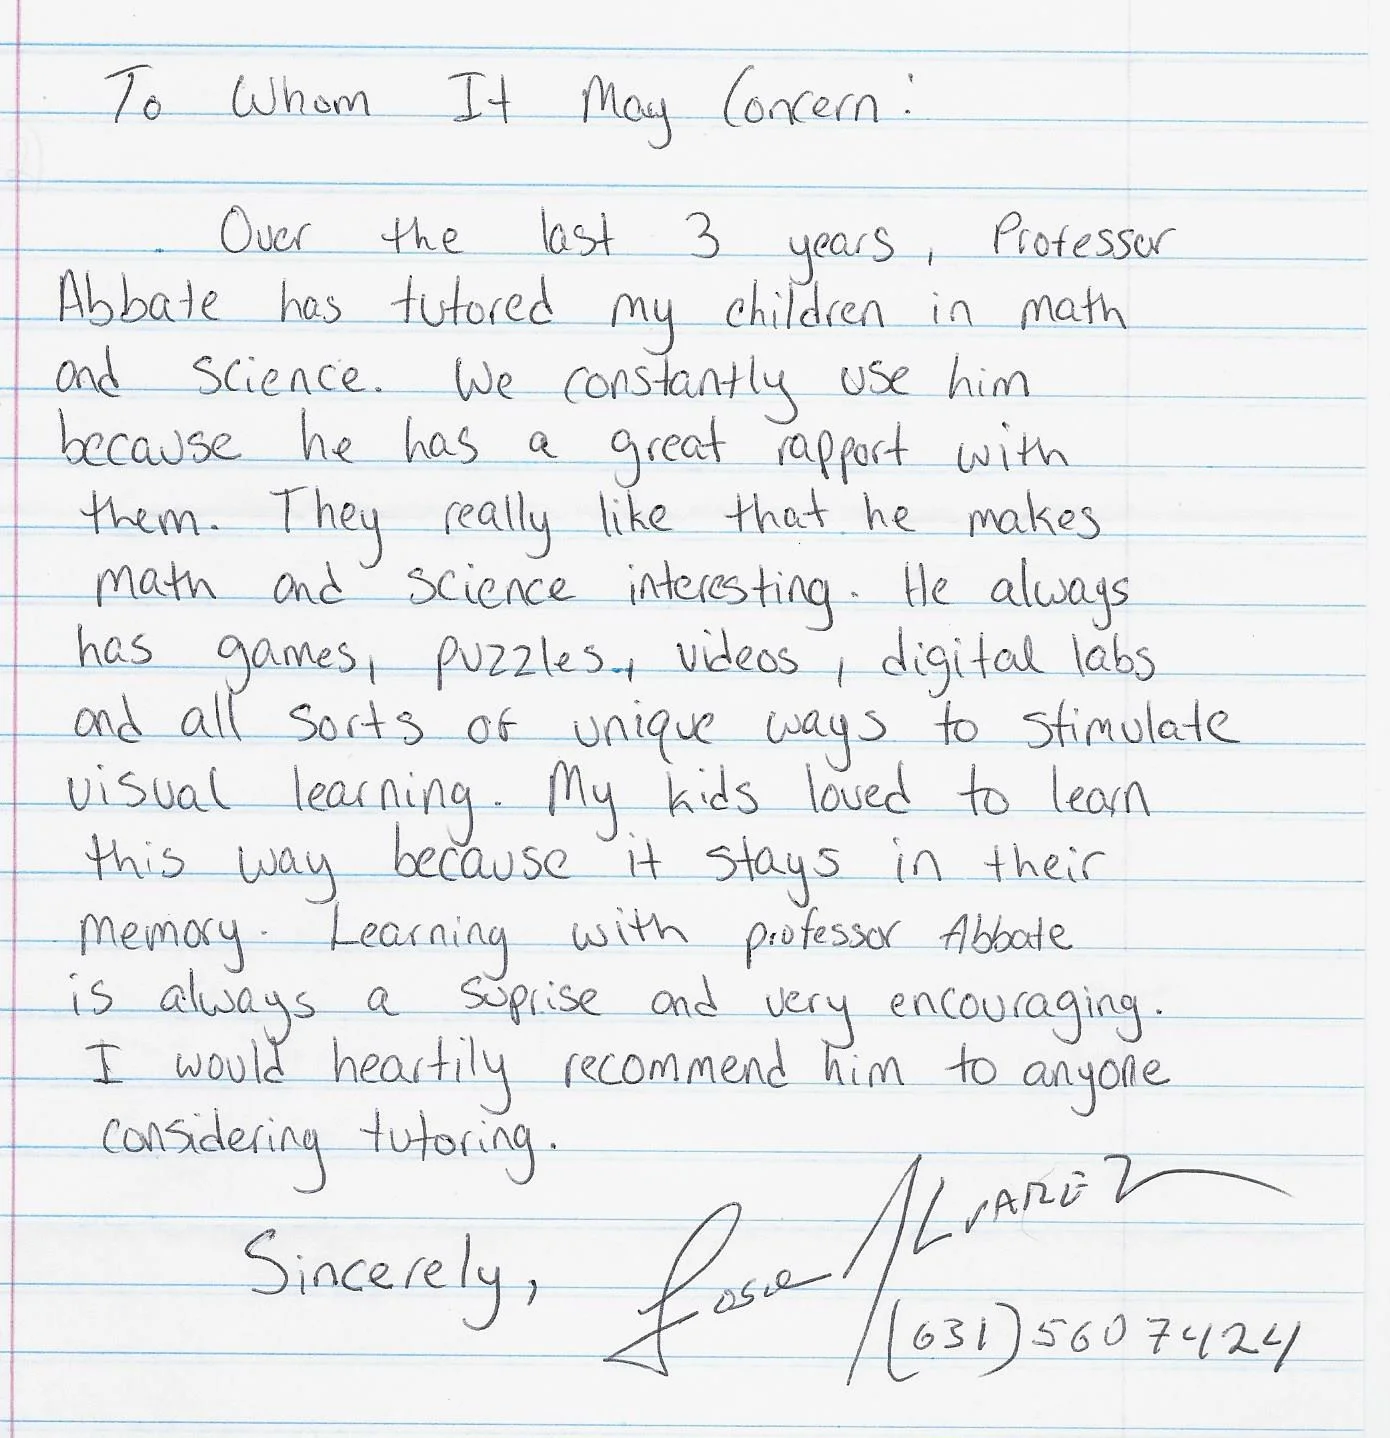 To Whom It May Concern:
Over the last 3 years, Professor
Abbate has tutored my children in math
and science. We constantly use him
because he has a great rapport with
them. They really like that he makes
math and science interesting. He always
has games, puzzles, videos, digital labs
and all sorts of unique ways to stimulate
visual learning. My kids loved to learn
this way because it stays in their
memory. Learning with professor Abbate
is always a suprise and very encouraging.
I would heartily recommend him to anyone
considering tutoring.
Sincerely, Josue ALVAREZ
(631) 5607424